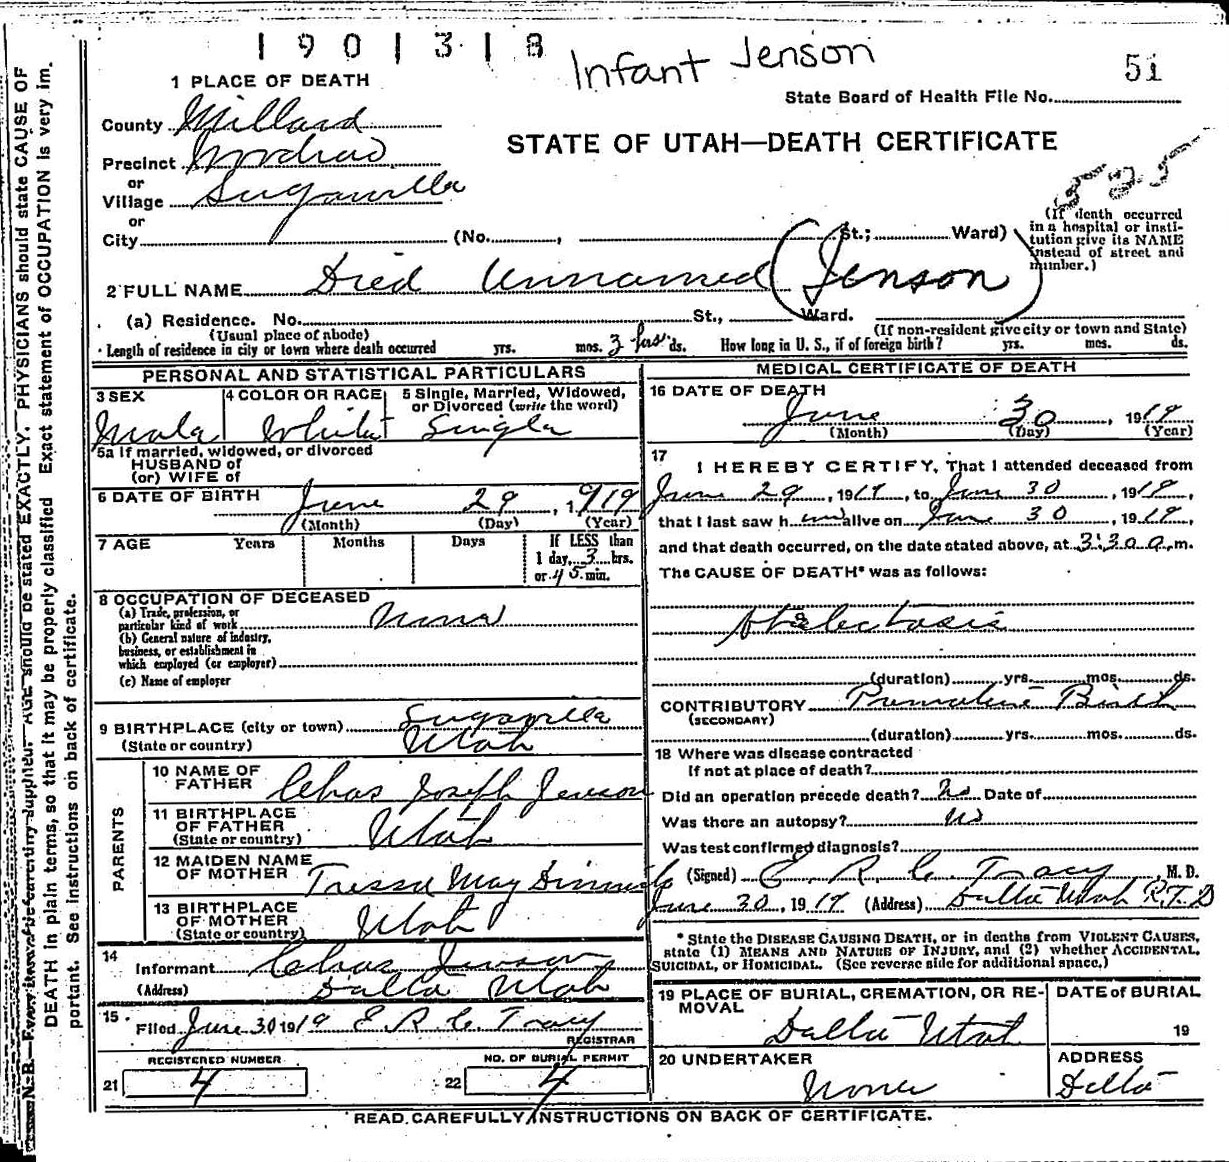 1901318
Infant Jenson
51
1 PLACE OF DEATH
State Board of Health File No.
County Millard
STATE OF UTAH—DEATH CERTIFICATE
Precinct Woodrow
or
Village Sugarville
525
or
City (No. , St.; Ward)
(If death occurred in a hospital or institution give its NAME instead of street and number.)
2 FULL NAME Died Unnamed (Jenson)
(a) Residence. No. St., Ward.
(Usual place of abode) (If non-resident give city or town and State)
Length of residence in city or town where death occurred yrs. mos. 3 hrs ds. How long in U. S., if of foreign birth? yrs. mos. ds.
PERSONAL AND STATISTICAL PARTICULARS
3 SEX Male
4 COLOR OR RACE White
5 Single, Married, Widowed, or Divorced (write the word) Single
5a If married, widowed, or divorced
HUSBAND of
(or) WIFE of
6 DATE OF BIRTH June 29, 1919
(Month) (Day) (Year)
7 AGE Years Months Days If LESS than
1 day, 3 hrs.
or 45 min.
8 OCCUPATION OF DECEASED
(a) Trade, profession, or
particular kind of work None
(b) General nature of industry,
business, or establishment in
which employed (or employer)
(c) Name of employer
9 BIRTHPLACE (city or town) Sugarville
(State or country) Utah
PARENTS
10 NAME OF FATHER Chas Joseph Jenson
11 BIRTHPLACE OF FATHER
(State or country) Utah
12 MAIDEN NAME OF MOTHER Tressa May
13 BIRTHPLACE OF MOTHER
(State or country) Utah
14 Informant Chas Jenson
(Address) Delta Utah
15 Filed June 30 1919 E. R. C. Tracy
REGISTRAR
REGISTERED NUMBER
21 4
NO. OF BURIAL PERMIT
22 4
MEDICAL CERTIFICATE OF DEATH
16 DATE OF DEATH
June 30, 1919
(Month) (Day) (Year)
17
I HEREBY CERTIFY, That I attended deceased from
June 29, 1919, to June 30, 1919,
that I last saw h im alive on June 30, 1919,
and that death occurred, on the date stated above, at 3:30 a.m.
The CAUSE OF DEATH* was as follows:
Atelectasis
(duration) yrs. mos. ds.
CONTRIBUTORY Premature Birth
(SECONDARY)
(duration) yrs. mos. ds.
18 Where was disease contracted
If not at place of death?
Did an operation precede death? No Date of
Was there an autopsy? No
Was test confirmed diagnosis?
(Signed) E. R. C. Tracy, M. D.
June 30, 1919 (Address) Delta Utah R.F.D
* State the DISEASE CAUSING DEATH, or in deaths from VIOLENT CAUSES,
state (1) MEANS AND NATURE OF INJURY, and (2) whether ACCIDENTAL,
SUICIDAL, or HOMICIDAL. (See reverse side for additional space.)
19 PLACE OF BURIAL, CREMATION, OR REMOVAL
Delta Utah
DATE of BURIAL
19
20 UNDERTAKER
None
ADDRESS
Delta
READ CAREFULLY INSTRUCTIONS ON BACK OF CERTIFICATE.
N. B.—Every item of information supplied. AGE should be stated EXACTLY. PHYSICIANS should state CAUSE OF
DEATH in plain terms, so that it may be properly classified Exact statement of OCCUPATION is very im.
portant. See instructions on back of certificate.